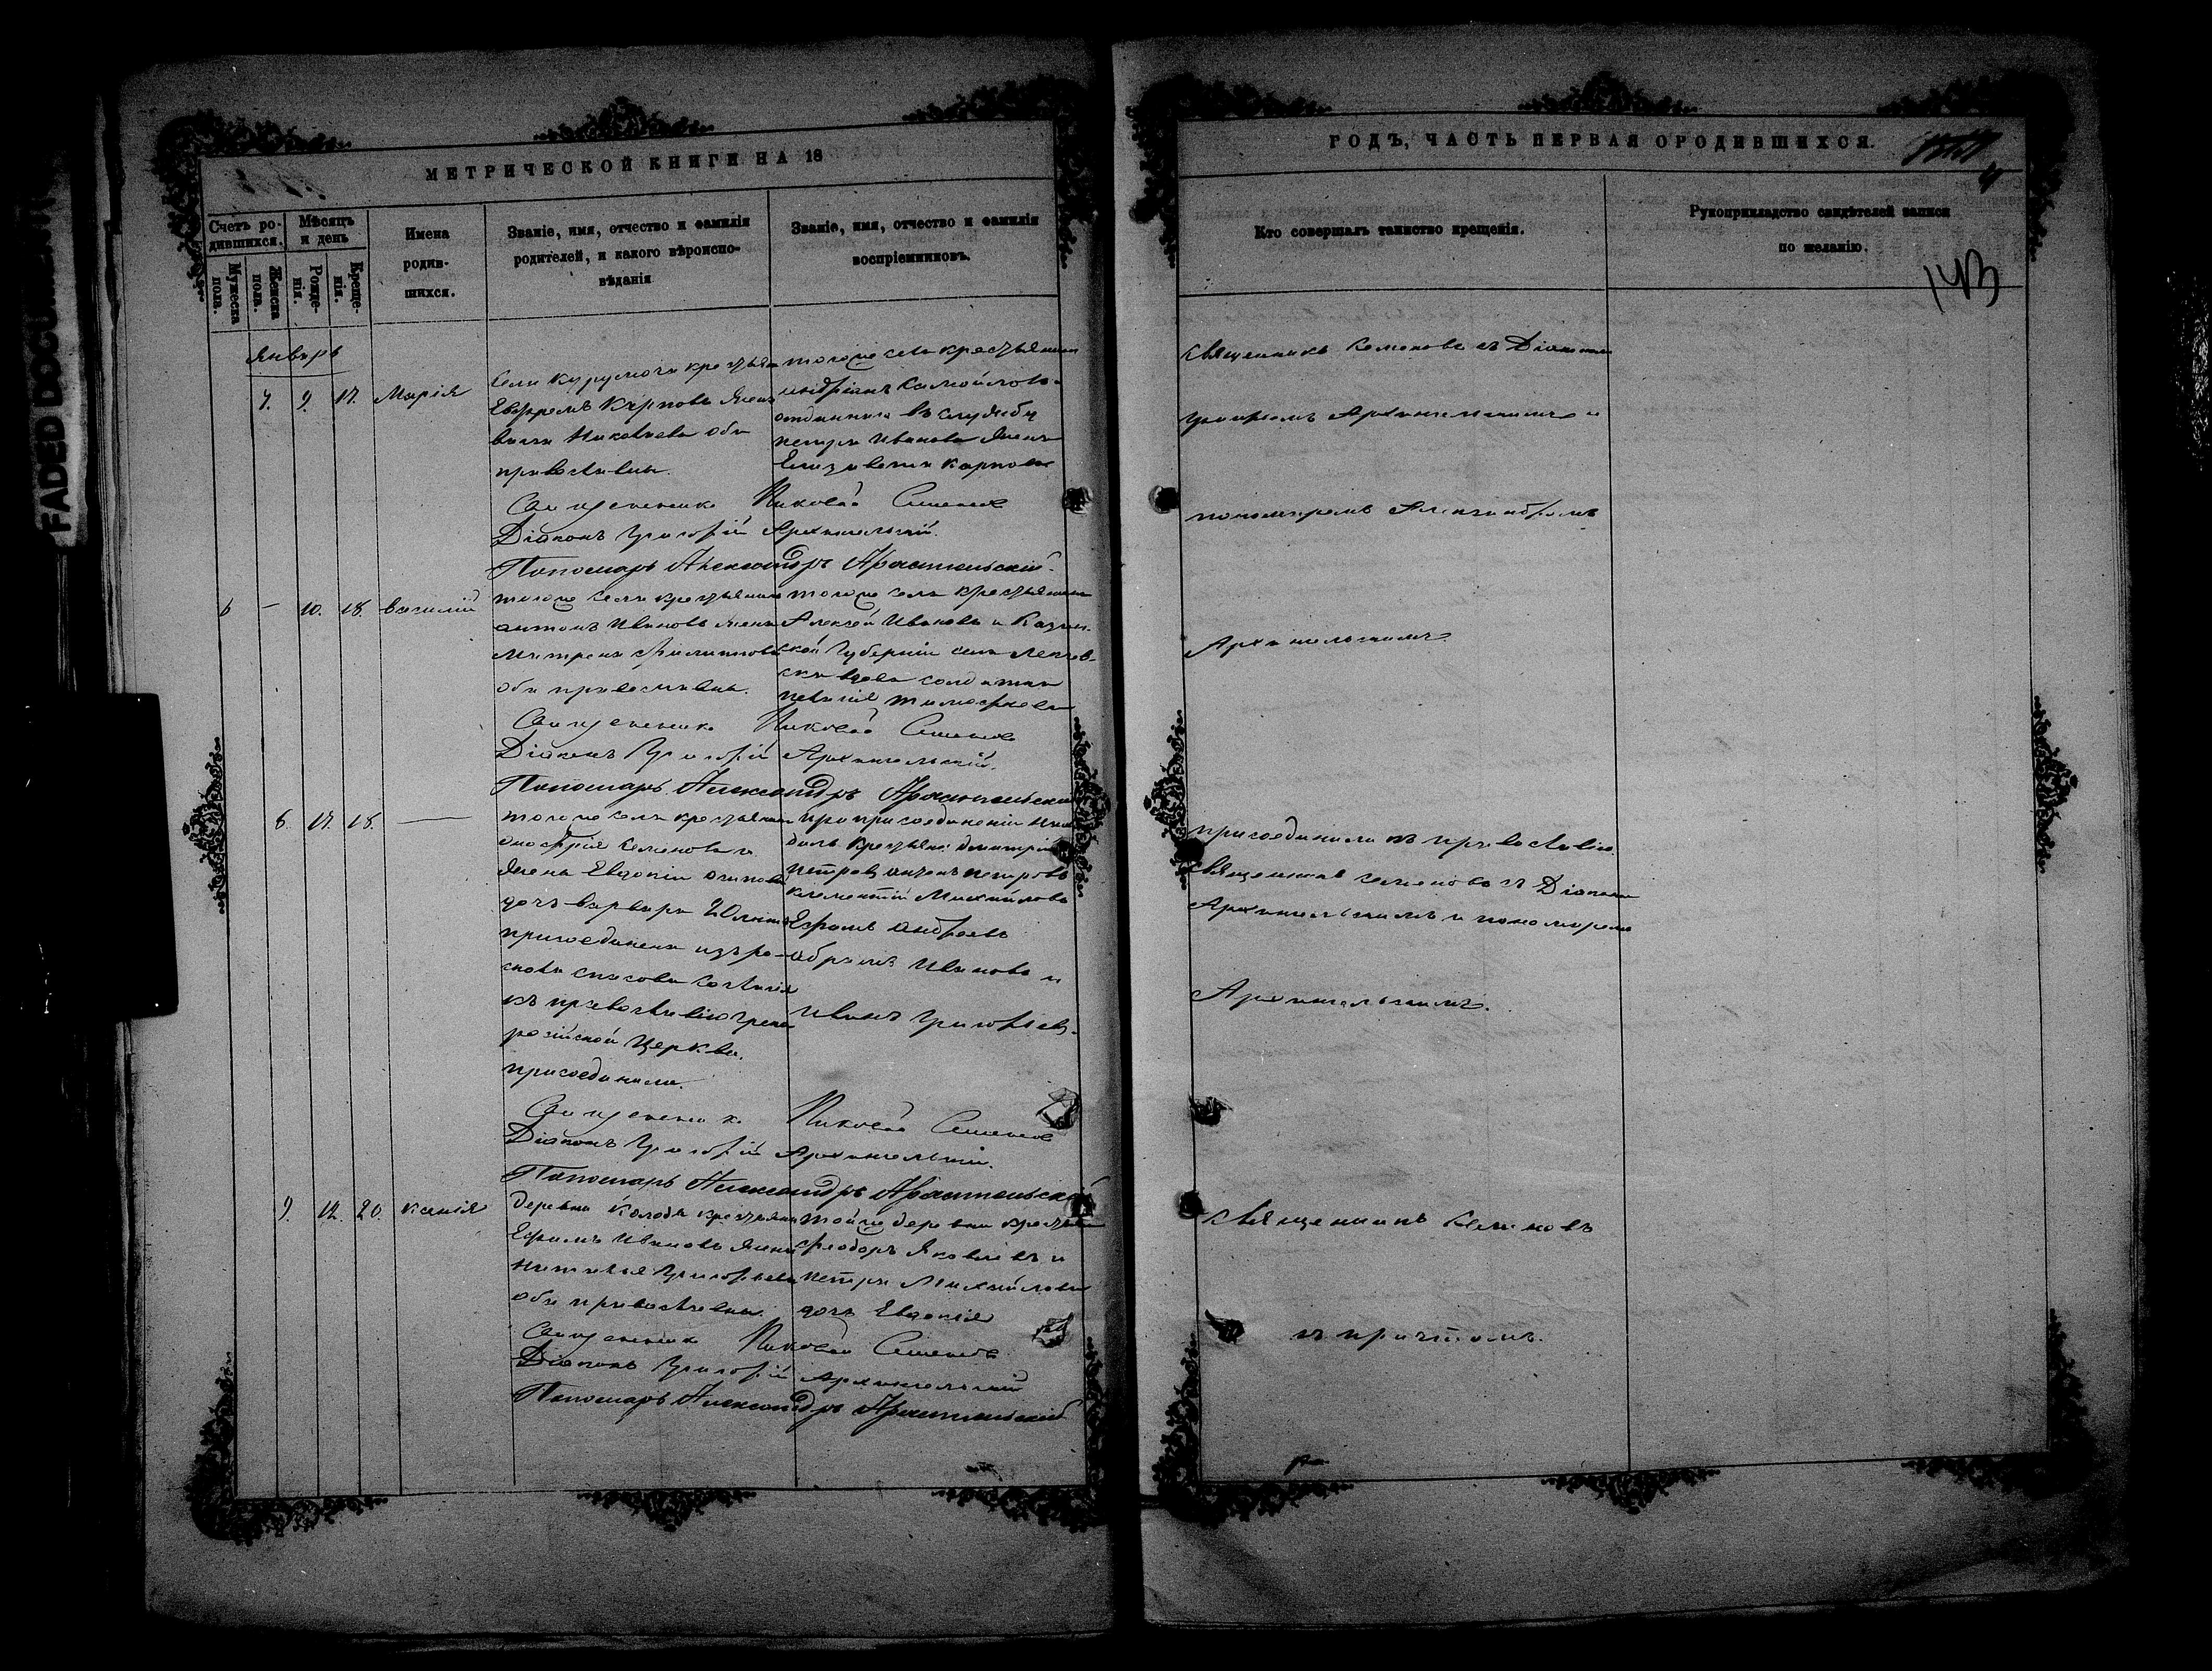 FADED DOCUMENT
МЕТРИЧЕСКОЙ КНИГИ НА 18
Счетъ родившихся.
Мѣсяцъ и день
Мужеска пола.
Женска пола.
Рожденія.
Крещенія.
Имена родившихся.
Званіе, имя, отчество и фамилія
родителей, и какого вѣроиспо-
вѣданія
Званіе, имя, отчество и фамилія
воспріемниковъ.
Январь
7. 9. 17. Марія
Села крестьян
Евфремъ Карповъ жена
Яковлева оба
православны.
тогоже села крестьянинъ
Самойловъ
отданнаго въ службу
петра Иванова жена
Елизавета Карпова
Священникъ Николай Семеновъ
Діаконъ Григорій Архангельскій.
Пономарь Александръ Архангельскій.
6 — 10. 18. Василий
тогоже села крестьянинъ
антонъ Ивановъ жена
Матрена Филиппова
оба православны.
тогоже села крестьянинъ
Алексѣй Ивановъ и Казан-
ской Губерніи села
вдова солдатка
Тимофѣева
Священникъ Николай Семеновъ
Діаконъ Григорій Архангельскій.
Пономарь Александръ Архангельскій
8. 17. 18. —
тогоже села крестьянинъ
Семеновъ
жена Евдокіи
дочь варвара 20 лѣтъ
присоединена изъ ра-
скола спасова согласія
къ православію греко
россійской Церкви.
присоединили.
при присоединеніи
крестьяне дмитрій
петровъ петровъ
климентій Михайловъ
Ефремъ андреевъ
абрамъ Ивановъ и
Иванъ Григорьевъ.
Священникъ Николай Семеновъ
Діаконъ Григорій Архангельскій.
Пономарь Александръ Архангельскій
9. 12. 20. ксенія
деревни крестьянинъ
Ефимъ Ивановъ жена
наталья Григорьева
оба православны.
тойже деревни крестьян
феодоръ Яковлевъ и
петра Михайлова
дочь Евдокія
Священникъ Николай Семеновъ
Діаконъ Григорій Архангельскій
Пономарь Александръ Архангельскій
ГОДЪ, ЧАСТЬ ПЕРВАЯ О РОДИВШИХСЯ.
143
Кто совершалъ таинство крещенія.
Рукоприкладство свидѣтелей записи
по желанію.
священникъ Семеновъ съ Діакономъ
Архангельскимъ и
пономаремъ Александромъ
Архангельскимъ.
присоединили къ православію
священникъ семеновъ съ Діакономъ
Архангельскимъ и пономаремъ
Архангельскимъ.
священникъ Семеновъ
съ причтомъ.